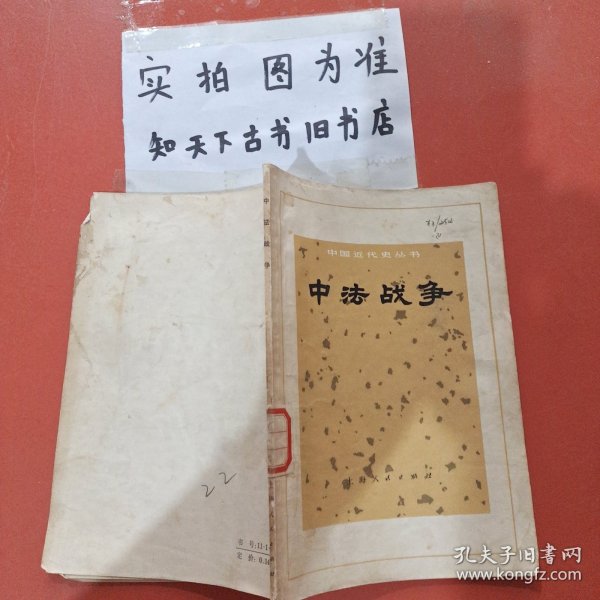 实拍图为准
知天下古书旧书店
中国近代史丛书
中法战争
上海人民出版社
中法战争
22
书号:11·1
定价:0.
孔夫子旧书网
www.kongfz.com